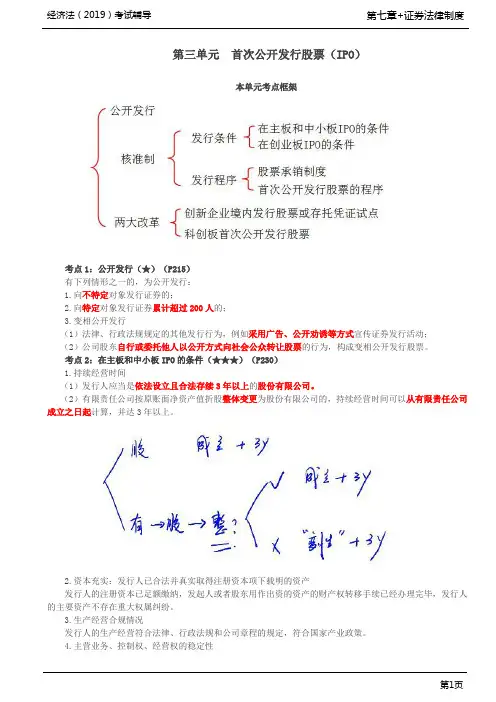 经济法（2019）考试辅导 第七章+证券法律制度
第三单元 首次公开发行股票（IPO）
本单元考点框架
公开发行
核准制
发行条件
在主板和中小板IPO的条件
在创业板IPO的条件
发行程序
股票承销制度
首次公开发行股票的程序
两大改革
创新企业境内发行股票或存托凭证试点
科创板首次公开发行股票
考点1：公开发行（★）（P215）
有下列情形之一的，为公开发行：
1.向不特定对象发行证券的；
2.向特定对象发行证券累计超过200人的；
3.变相公开发行
（1）法律、行政法规规定的其他发行行为，例如采用广告、公开劝诱等方式宣传证券发行活动；
（2）公司股东自行或委托他人以公开方式向社会公众转让股票的行为，构成变相公开发行股票。
考点2：在主板和中小板IPO的条件（★★★）（P230）
1.持续经营时间
（1）发行人应当是依法设立且合法存续3年以上的股份有限公司。
（2）有限责任公司按原账面净资产值折股整体变更为股份有限公司的，持续经营时间可以从有限责任公司
成立之日起计算，并达3年以上。
股 成立+3y
有→股→整？ √ 成立+3y
x +3y
2.资本充实：发行人已合法并真实取得注册资本项下载明的资产
发行人的注册资本已足额缴纳，发起人或者股东用作出资的资产的财产权转移手续已经办理完毕，发行人
的主要资产不存在重大权属纠纷。
3.生产经营合规情况
发行人的生产经营符合法律、行政法规和公司章程的规定，符合国家产业政策。
4.主营业务、控制权、经营权的稳定性
第1页